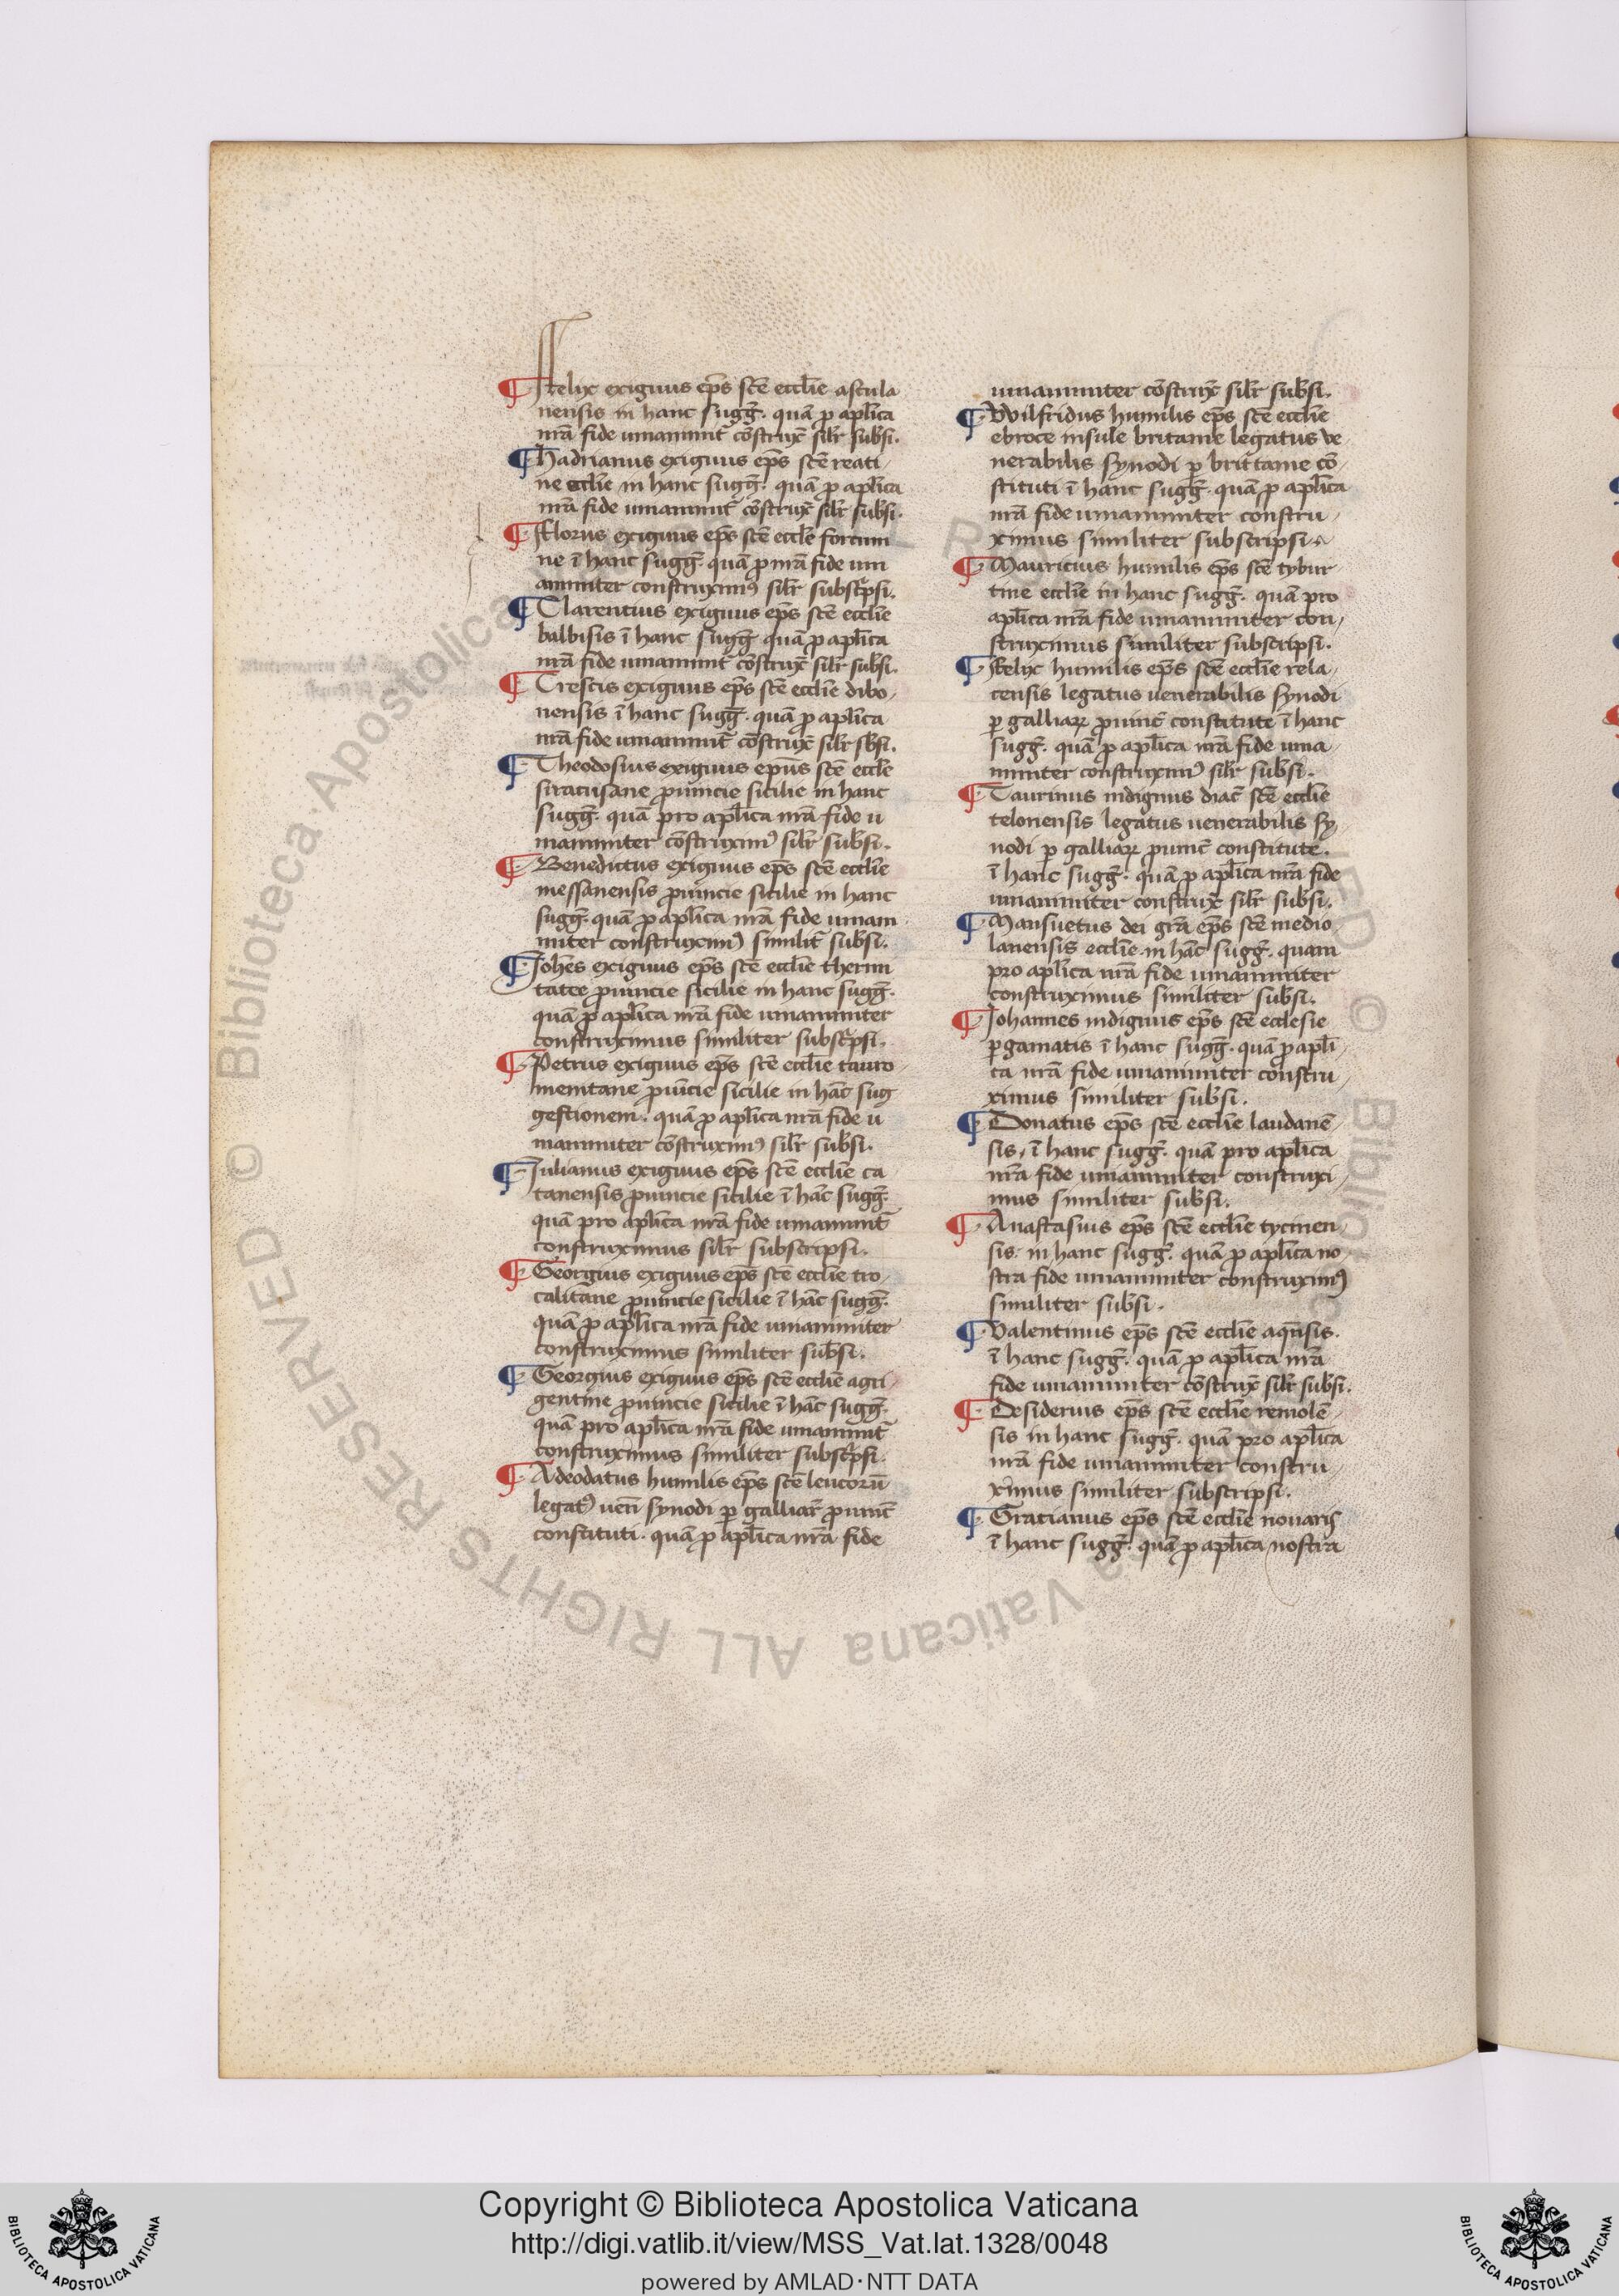 ¶ Felix exiguus ep̄s scē eccl̄ie ascula
nensis in hanc sugḡ. quā ꝓ apl̄ica
nr̄a fide unanimit̄ cōstrux̄ silr̄ subsi.
¶ Hadrianus exiguus ep̄s scē reati
ne eccl̄ie in hanc sugḡ. quā ꝓ apl̄ica
nr̄a fide unanimit̄ cōstrux̄ silr̄ subsi.
¶ Florus exiguus ep̄s scē eccle forcim
ne ī hanc sugḡ. quā ꝓ nr̄a fide un
animiter construximꝰ silr̄ subsc̄psi.
¶ Clarentius exiguus ep̄s scē eccl̄ie
balbisis ī hanc sugḡ quā ꝓ apl̄ica
nr̄a fide unanimit̄ cōstrux̄ silr̄ subsi.
¶ Crescis exiguus ep̄s scē eccl̄ie dibo
nensis ī hanc sugḡ. quā ꝓ apl̄ica
nr̄a fide unanimit̄ cōstrux̄ silr̄ sbsi.
¶ Theodosius exiguus epūs scē eccle
siracusane ꝓuincie sicilie in hanc
sugḡ. quā pro apl̄ica nr̄a fide u
nanimiter cōstruximꝰ silr̄ subsi.
¶ Benedictus exiguus ep̄s scē eccl̄ie
messanensis ꝓuincie sicilie in hanc
sugḡ. quā ꝓ apl̄ica nr̄a fide unani
miter construximꝰ similit̄ subsi.
¶ Joh̄es exiguus ep̄s scē eccl̄ie thermi
tatee ꝓuincie sicilie in hanc sugḡ.
quā ꝓ apl̄ica nr̄a fide unanimiter
construximus similiter subsc̄psi.
¶ Petrus exiguus ep̄s scē eccl̄ie tauro
menitane ꝓuīcie sicilie in hāc sug
gestionem. quā ꝓ apl̄ica nr̄a fide u
nanimiter cōstruximꝰ silr̄ subsi.
¶ Julianus exiguus ep̄s scē eccl̄ie ca
tanensis ꝓuincie sicilie ī hāc sugḡ.
quā pro apl̄ica nr̄a fide unanimit̄
construximus silr̄ subscripsi.
¶ Georgius exiguus ep̄s scē eccl̄ie tro
calitane ꝓuincie sicilie ī hāc sugḡ.
quā ꝓ apl̄ica nr̄a fide unanimiter
construximus similiter subsi.
¶ Georgius exiguus ep̄s scē eccl̄ie agri
gentine ꝓuincie sicilie ī hāc sugḡ.
quā pro apl̄ica nr̄a fide unanimit̄
construximus similiter subsc̄psi.
¶ Adeodatus humilis ep̄s scē leucorū
legatꝰ uen̄ synodi ꝑ galliar̄ ꝓuinc̄
constituti. quā ꝓ apl̄ica nr̄a fide
unanimiter cōstrux̄ silr̄ subsi.
¶ Wilfridus humilis ep̄s scē eccl̄ie
ebroce insule britanie legatus ve
nerabilis synodi ꝑ brittanie cō
stituti ī hanc sugḡ. quā ꝓ apl̄ica
nr̄a fide unanimiter constru
ximus similiter subscripsi.
¶ Mauricius humilis ep̄s scē tybur
tine eccl̄ie in hanc sugḡ. quā pro
apl̄ica nr̄a fide unanimiter con
struximus similiter subscripsi.
¶ Felix humilis ep̄s scē eccl̄ie rela
tensis legatus uenerabilis synodi
ꝑ galliaꝝ ꝓuinc̄ constitute ī hanc
sugḡ. quā ꝓ apl̄ica nr̄a fide una
nimiter construximꝰ silr̄ subsi.
¶ Taurinus indignus diac̄ scē eccl̄ie
telonensis legatus uenerabilis sy
nodi ꝑ galliaꝝ ꝓuinc̄ constitute.
ī hanc sugḡ. quā ꝓ apl̄ica nr̄a fide
unanimiter construx̄ silr̄ subsi.
¶ Mansuetus dei gr̄a ep̄s scē medio
lanensis eccl̄ie in hāc sugḡ. quam
pro apl̄ica nr̄a fide unanimiter
construximus similiter subsi.
¶ Johannes indignus ep̄s scē ecclesie
ꝑgamatis ī hanc sugḡ. quā ꝓ apl̄i
ca nr̄a fide unanimiter constru
ximus similiter subsi.
¶ Donatus ep̄s scē eccl̄ie laudanē
sis, ī hanc sugḡ. quā pro apl̄ica
nr̄a fide unanimiter construxi
mus similiter subsi.
¶ Anastasius ep̄s scē eccl̄ie tycinen
sis. in hanc sugḡ. quā ꝓ apl̄ica no
stra fide unanimiter construximꝰ
similiter subsi.
¶ Valentinus ep̄s scē eccl̄ie aq̄nsis.
ī hanc sugḡ. quā ꝓ apl̄ica nr̄a
fide unanimiter cōstrux̄ silr̄ subsi.
¶ Desiderius ep̄s scē eccl̄ie remolē
sis in hanc sugḡ. quā pro apl̄ica
nr̄a fide unanimiter constru
ximus similiter subscripsi.
¶ Gratianus ep̄s scē eccl̄ie nouarꝭ
ī hanc sugḡ. quā ꝓ apl̄ica nostra
© Biblioteca Apostolica Vaticana ALL RIGHTS RESERVED
Copyright © Biblioteca Apostolica Vaticana
http://digi.vatlib.it/view/MSS_Vat.lat.1328/0048
powered by AMLAD·NTT DATA
BIBLIOTECA APOSTOLICA VATICANA
BIBLIOTECA APOSTOLICA VATICANA